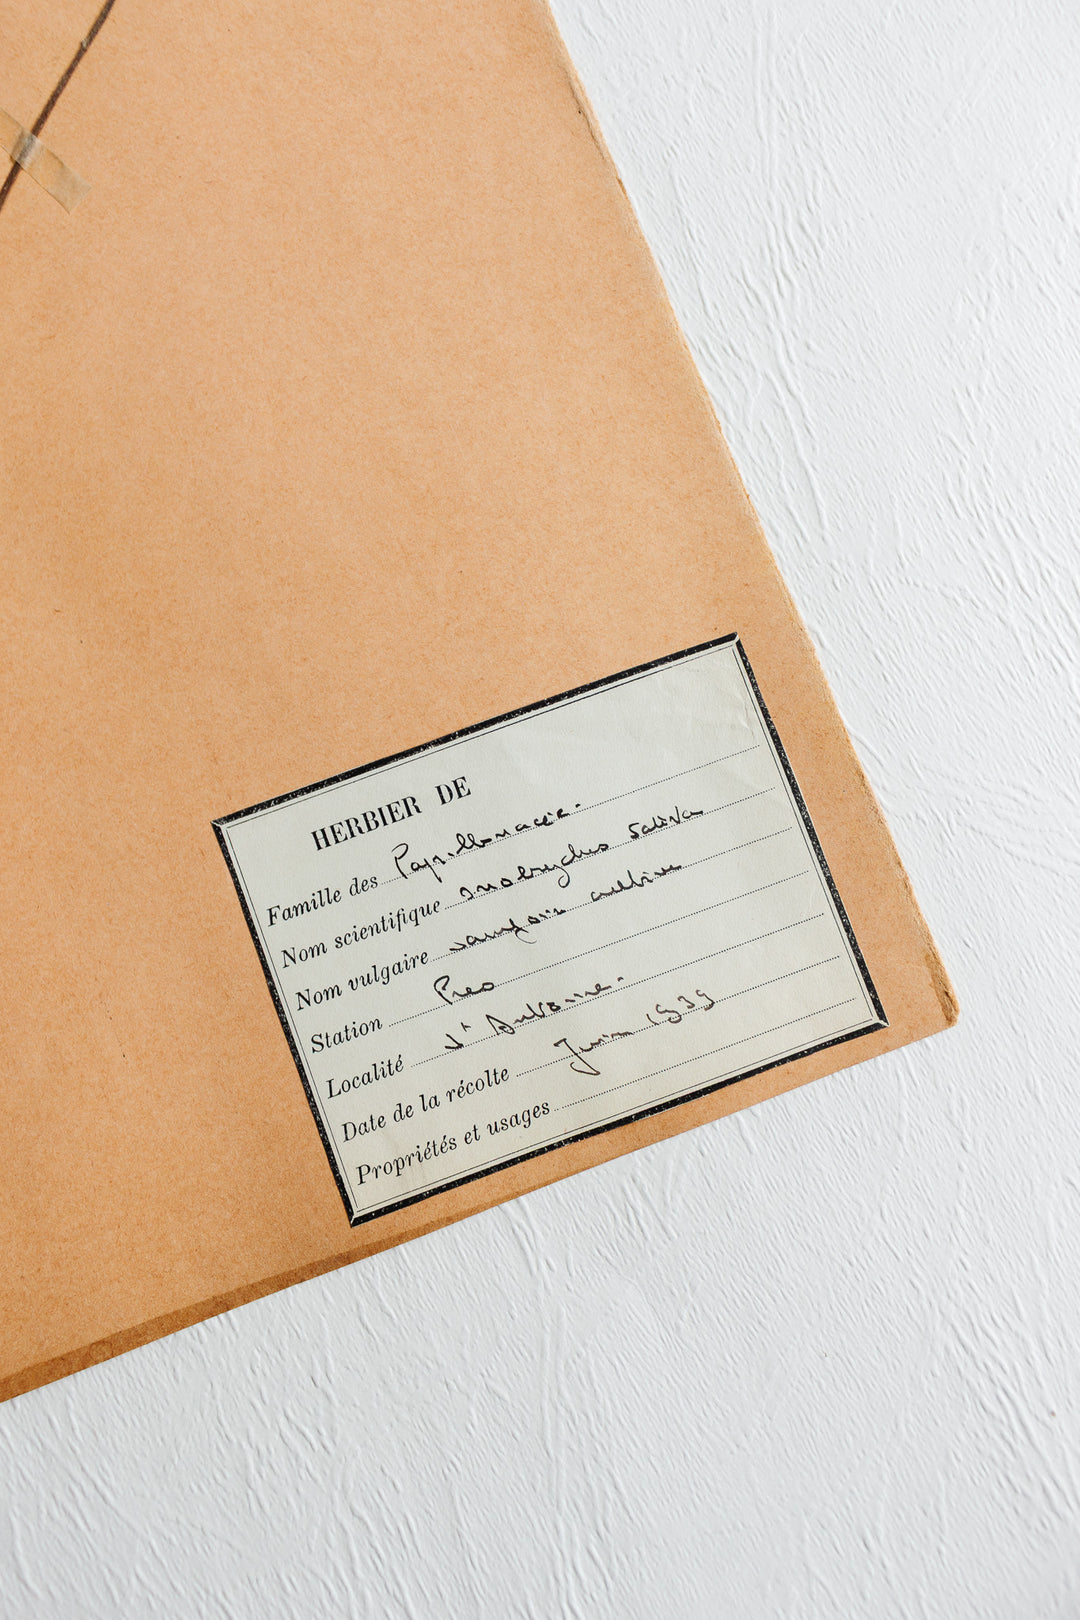 HERBIER DE
Famille des Papillonacée.
Nom scientifique onobrychis sativa
Nom vulgaire sainfoin cultivé
Station Prés
Localité St Antoine.
Date de la récolte Juin 1939
Propriétés et usages